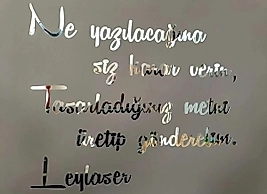 Ne yazılacağına
siz karar verin,
Tasarladığınız metni
üretip gönderelim.
Leylaser